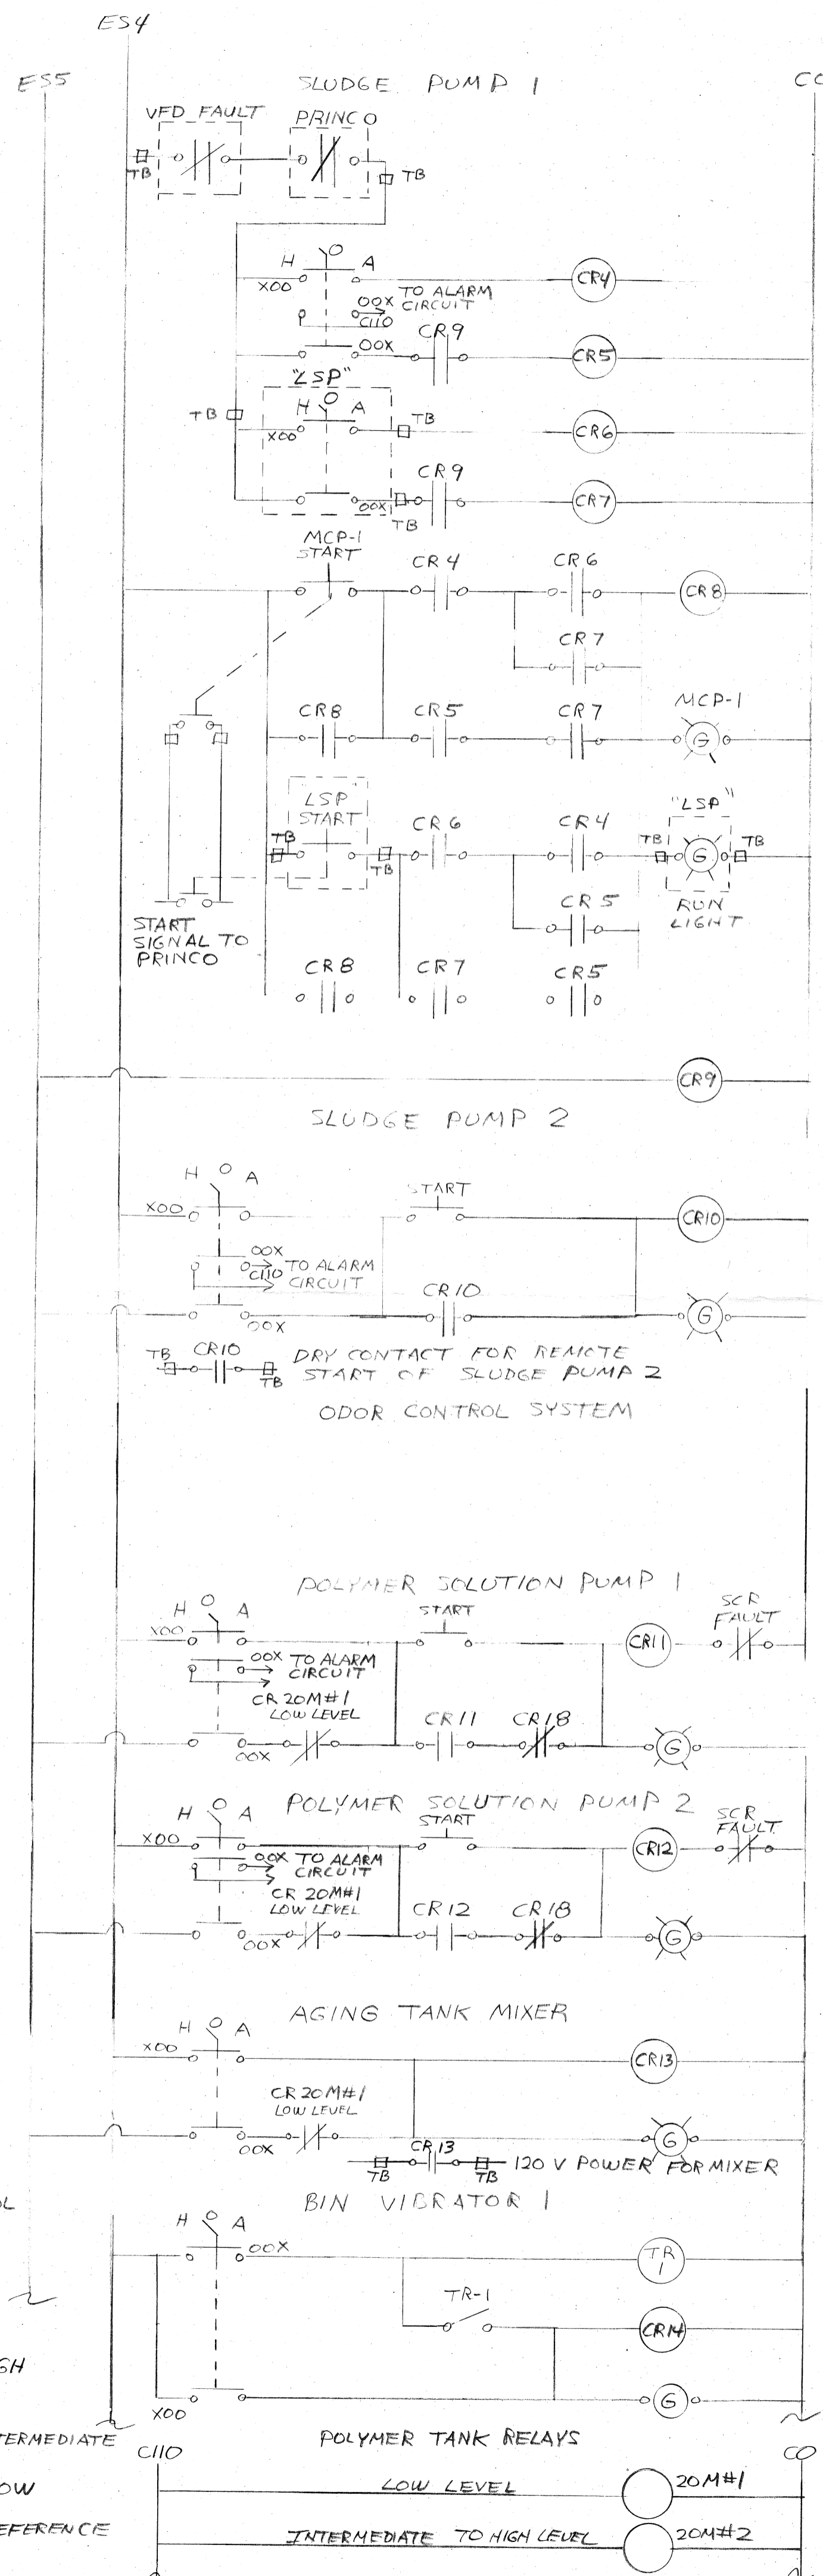 ES4
ES5
CC
SLUDGE PUMP 1
VFD FAULT
PRINCO
TB
TB
H A
X00
CR4
00X TO ALARM
C110 CIRCUIT
CR9
00X
CR5
"LSP"
H A
TB
TB
X00
CR6
CR9
00X
TB
CR7
MCP-1
START
CR4
CR6
CR8
CR7
CR8
CR5
CR7
MCP-1
G
LSP
START
TB
TB
CR6
CR4
"LSP"
TB
G
TB
RUN
LIGHT
CR5
START
SIGNAL TO
PRINCO
CR8
CR7
CR5
CR9
SLUDGE PUMP 2
H A
X00
START
CR10
00X
C110 TO ALARM
CIRCUIT
CR10
00X
G
TB CR10
TB
DRY CONTACT FOR REMOTE
START OF SLUDGE PUMP 2
ODOR CONTROL SYSTEM
POLYMER SOLUTION PUMP 1
H A
X00
START
CR11
SCR
FAULT
00X TO ALARM
CIRCUIT
CR 20M#1
LOW LEVEL
00X
CR11
CR18
G
POLYMER SOLUTION PUMP 2
H A
X00
START
CR12
SCR
FAULT
00X TO ALARM
CIRCUIT
CR 20M#1
LOW LEVEL
00X
CR12
CR18
G
AGING TANK MIXER
H A
X00
CR13
CR 20M#1
LOW LEVEL
00X
G
CR13
TB
TB
120 V POWER FOR MIXER
BIN VIBRATOR 1
H A
00X
TR
1
TR-1
CR14
X00
G
OL
GH
TERMEDIATE
OW
EFERENCE
POLYMER TANK RELAYS
C110
CO
LOW LEVEL
20M#1
INTERMEDIATE TO HIGH LEVEL
20M#2